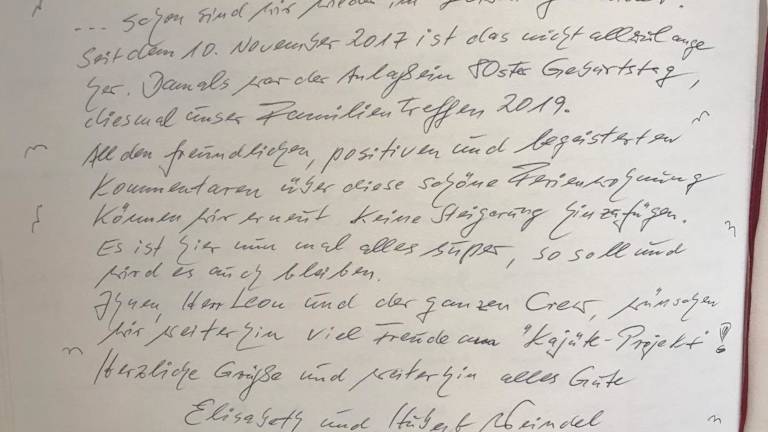 ... schon sind wir wieder im
Seit dem 10. November 2017 ist das nicht allzulange
her. Damals war der Anlaß ein 80ster Geburtstag,
diesmal unser Familientreffen 2019.
All den freundlichen, positiven und begeisterten
Kommentaren über diese schöne Ferienwohnung
können wir erneut keine Steigerung hinzufügen.
Es ist hier nun mal alles super, so soll und
wird es auch bleiben.
Ihnen, Herr Leon und der ganzen Crew, wünschen
wir weiterhin viel Freude am "Kajüte-Projekt"!
Herzliche Grüße und weiterhin alles Gute
Elisabeth und Hubert